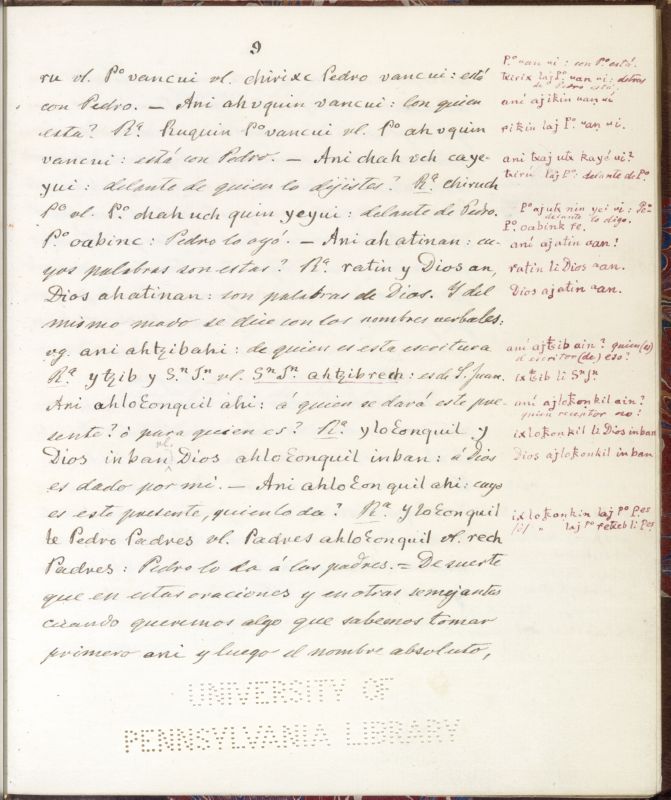 9
ru vl. Pº vancui vl. chirixc Pedro vancui: está
con Pedro. — Ani ahvquin vancui: con quien
esta? Rª. Ruquin Pº vancui vl. Pº ahvquin
vancui: está con Pedro. — Ani chah vch caye-
yui: delante de quien lo dijistes? Rª chiruch
Pº vl. Pº. chah uch quin yeyui: delante de Pedro.
Pº. oabinc: Pedro lo oyó. — Ani ahatinan: cu-
yas palabras son estas? Rª. ratin y Dios an,
Dios ahatinan: son palabras de Dios. Y del
mismo modo se dice con los nombres verbales:
vg. ani ahtzibahi: de quien es esta escritura
Rª ytzib y Sⁿ Jⁿ vl. Sⁿ Jⁿ. ahtzibrech: es de S. Juan.
Ani ahloɛonquil ahi: á quien se dará este pre-
sente? ò para quien es? Rª. yloɛonquil y
Dios inban vl. Dios ahloɛonquil inban: á Dios
es dado por mi. — Ani ahloɛonquil ahi: cuyo
es este presente, quien lo da? Rª. Yloɛonquil
te Pedro Padres vl. Padres ahloɛonquil vl. rech
Padres: Pedro lo da á los padres. = De suerte
que en estas oraciones y en otras semejantes
cuando queremos algo que sabemos tomar
primero ani y luego el nombre absoluto,
Pº van vi: con Pº está.
txirix laj Pº. van vi: detras
de Pedro está.
aní ajikin van vi
rikin laj Pº. van vi.
ani txaj utx kayé vi?
txirú laj Pº: delante de Pº.
Pº ajutx nin yei vi: Pº
delante lo digo.
Pº. oabink re.
aní ajatin van?
ratin li Dios van.
Dios ajatin van.
aní ajtib ain? quien (es)
el escritor (de) eso?
ix tib li Sⁿ Jⁿ.
aní ajlokonkil ain?
ixlokonkil li Dios inban
Dios ajlokonkil inban
ixlokonkin laj Pº Pes
UNIVERSITY OF
PENNSYLVANIA LIBRARY